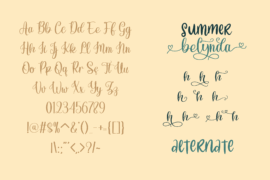 Aa Bb Cc Dd Ee Ff Gg
Hh Ii Jj Kk Ll Mm Nn
Oo Pp Qq Rr Ss Tt Uu
Vv Ww Xx Yy Zz
0123456789
SUMMER
belynda
h h h
h h h
h h h
alternate